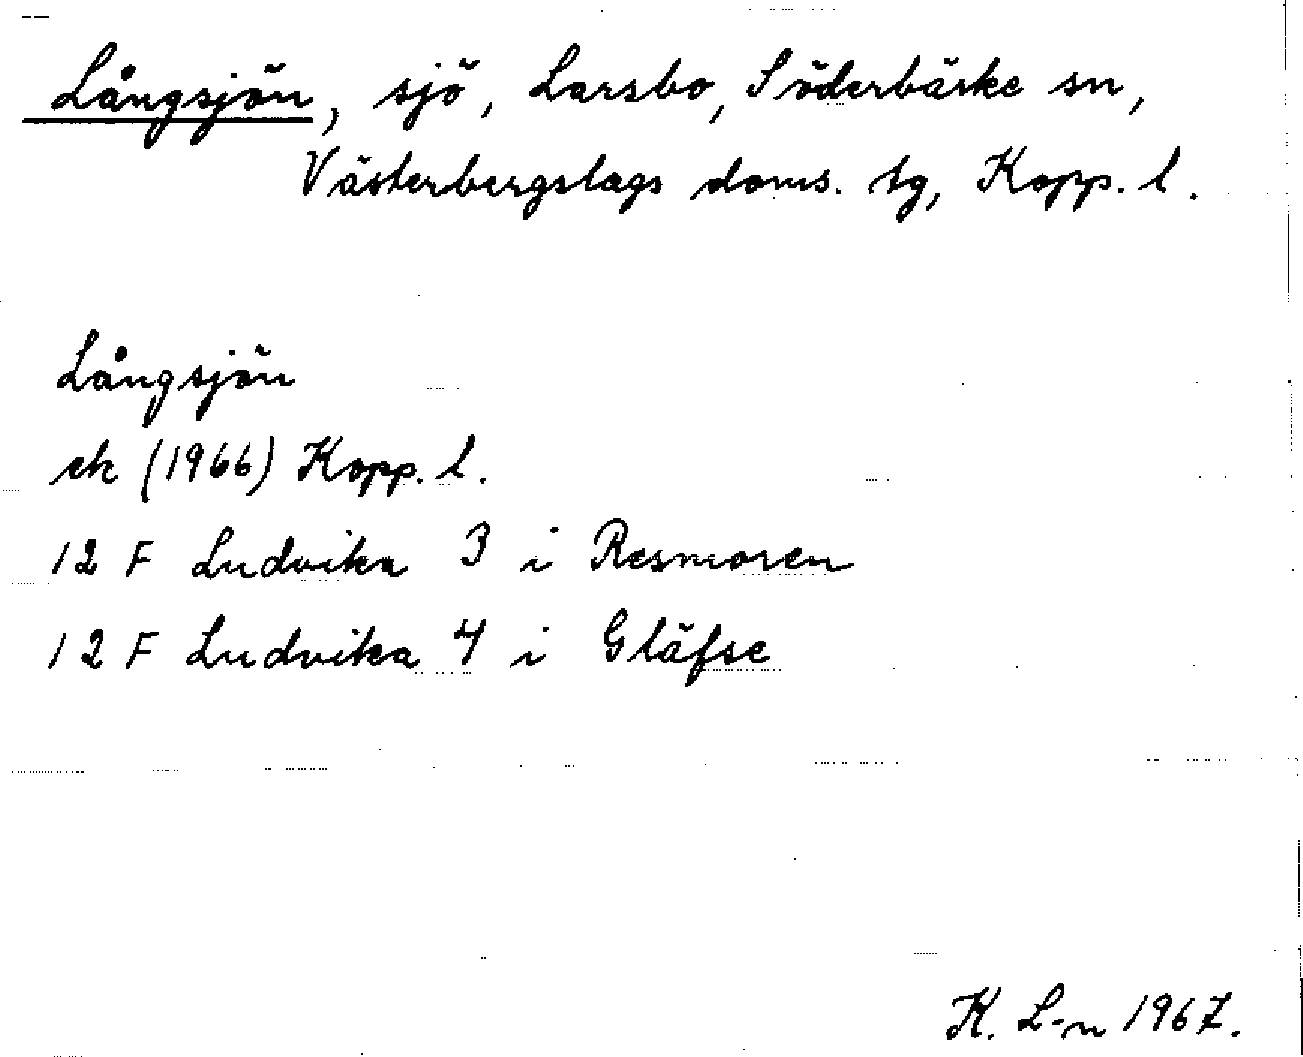 Långsjön, sjö, Larsbo, Söderbärke sn,
Västerbergslags doms. tg, Kopp. l.
Långsjön
ek (1966) Kopp. l.
12 F Ludvika 3 i Resmoren
12 F Ludvika 4 i Gläfse
K. L-n 1967.